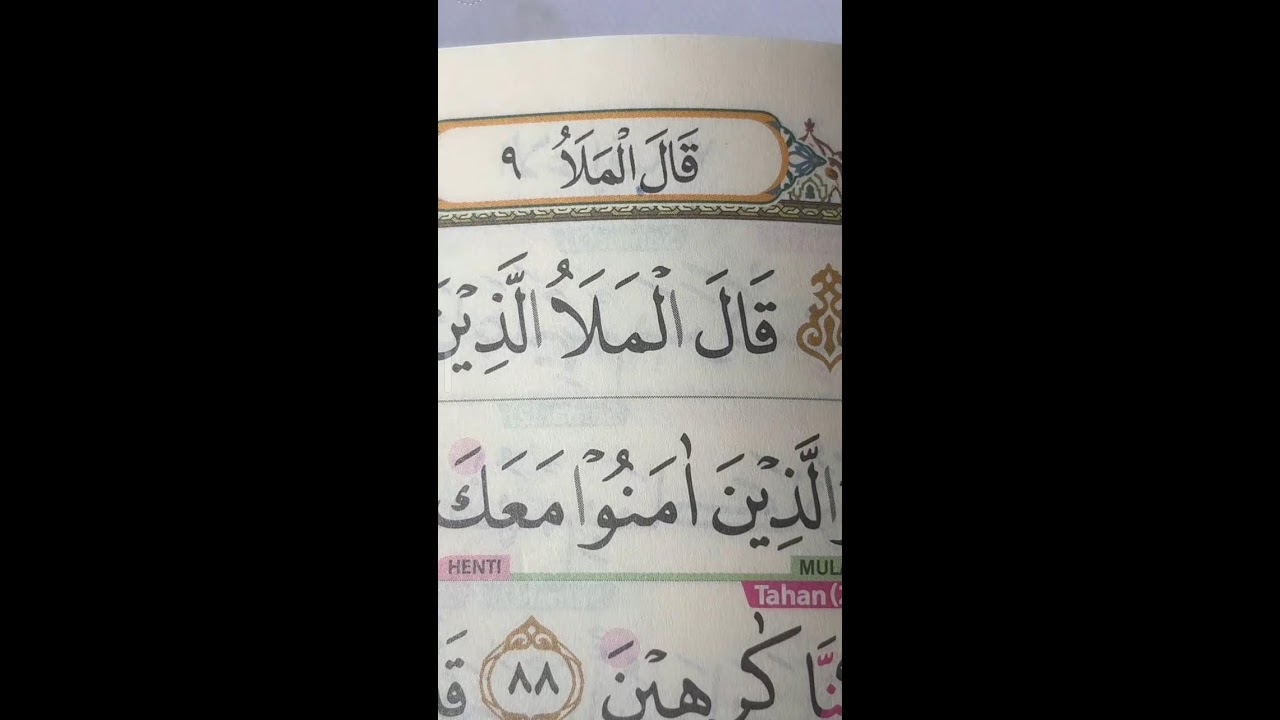 قَالَ الْمَلَأُ ٩
قَالَ الْمَلَأُ الَّذِيْنَ
الَّذِيْنَ اٰمَنُوْا مَعَكَ
HENTI
Tahan
كٰرِهِيْنَ ٨٨